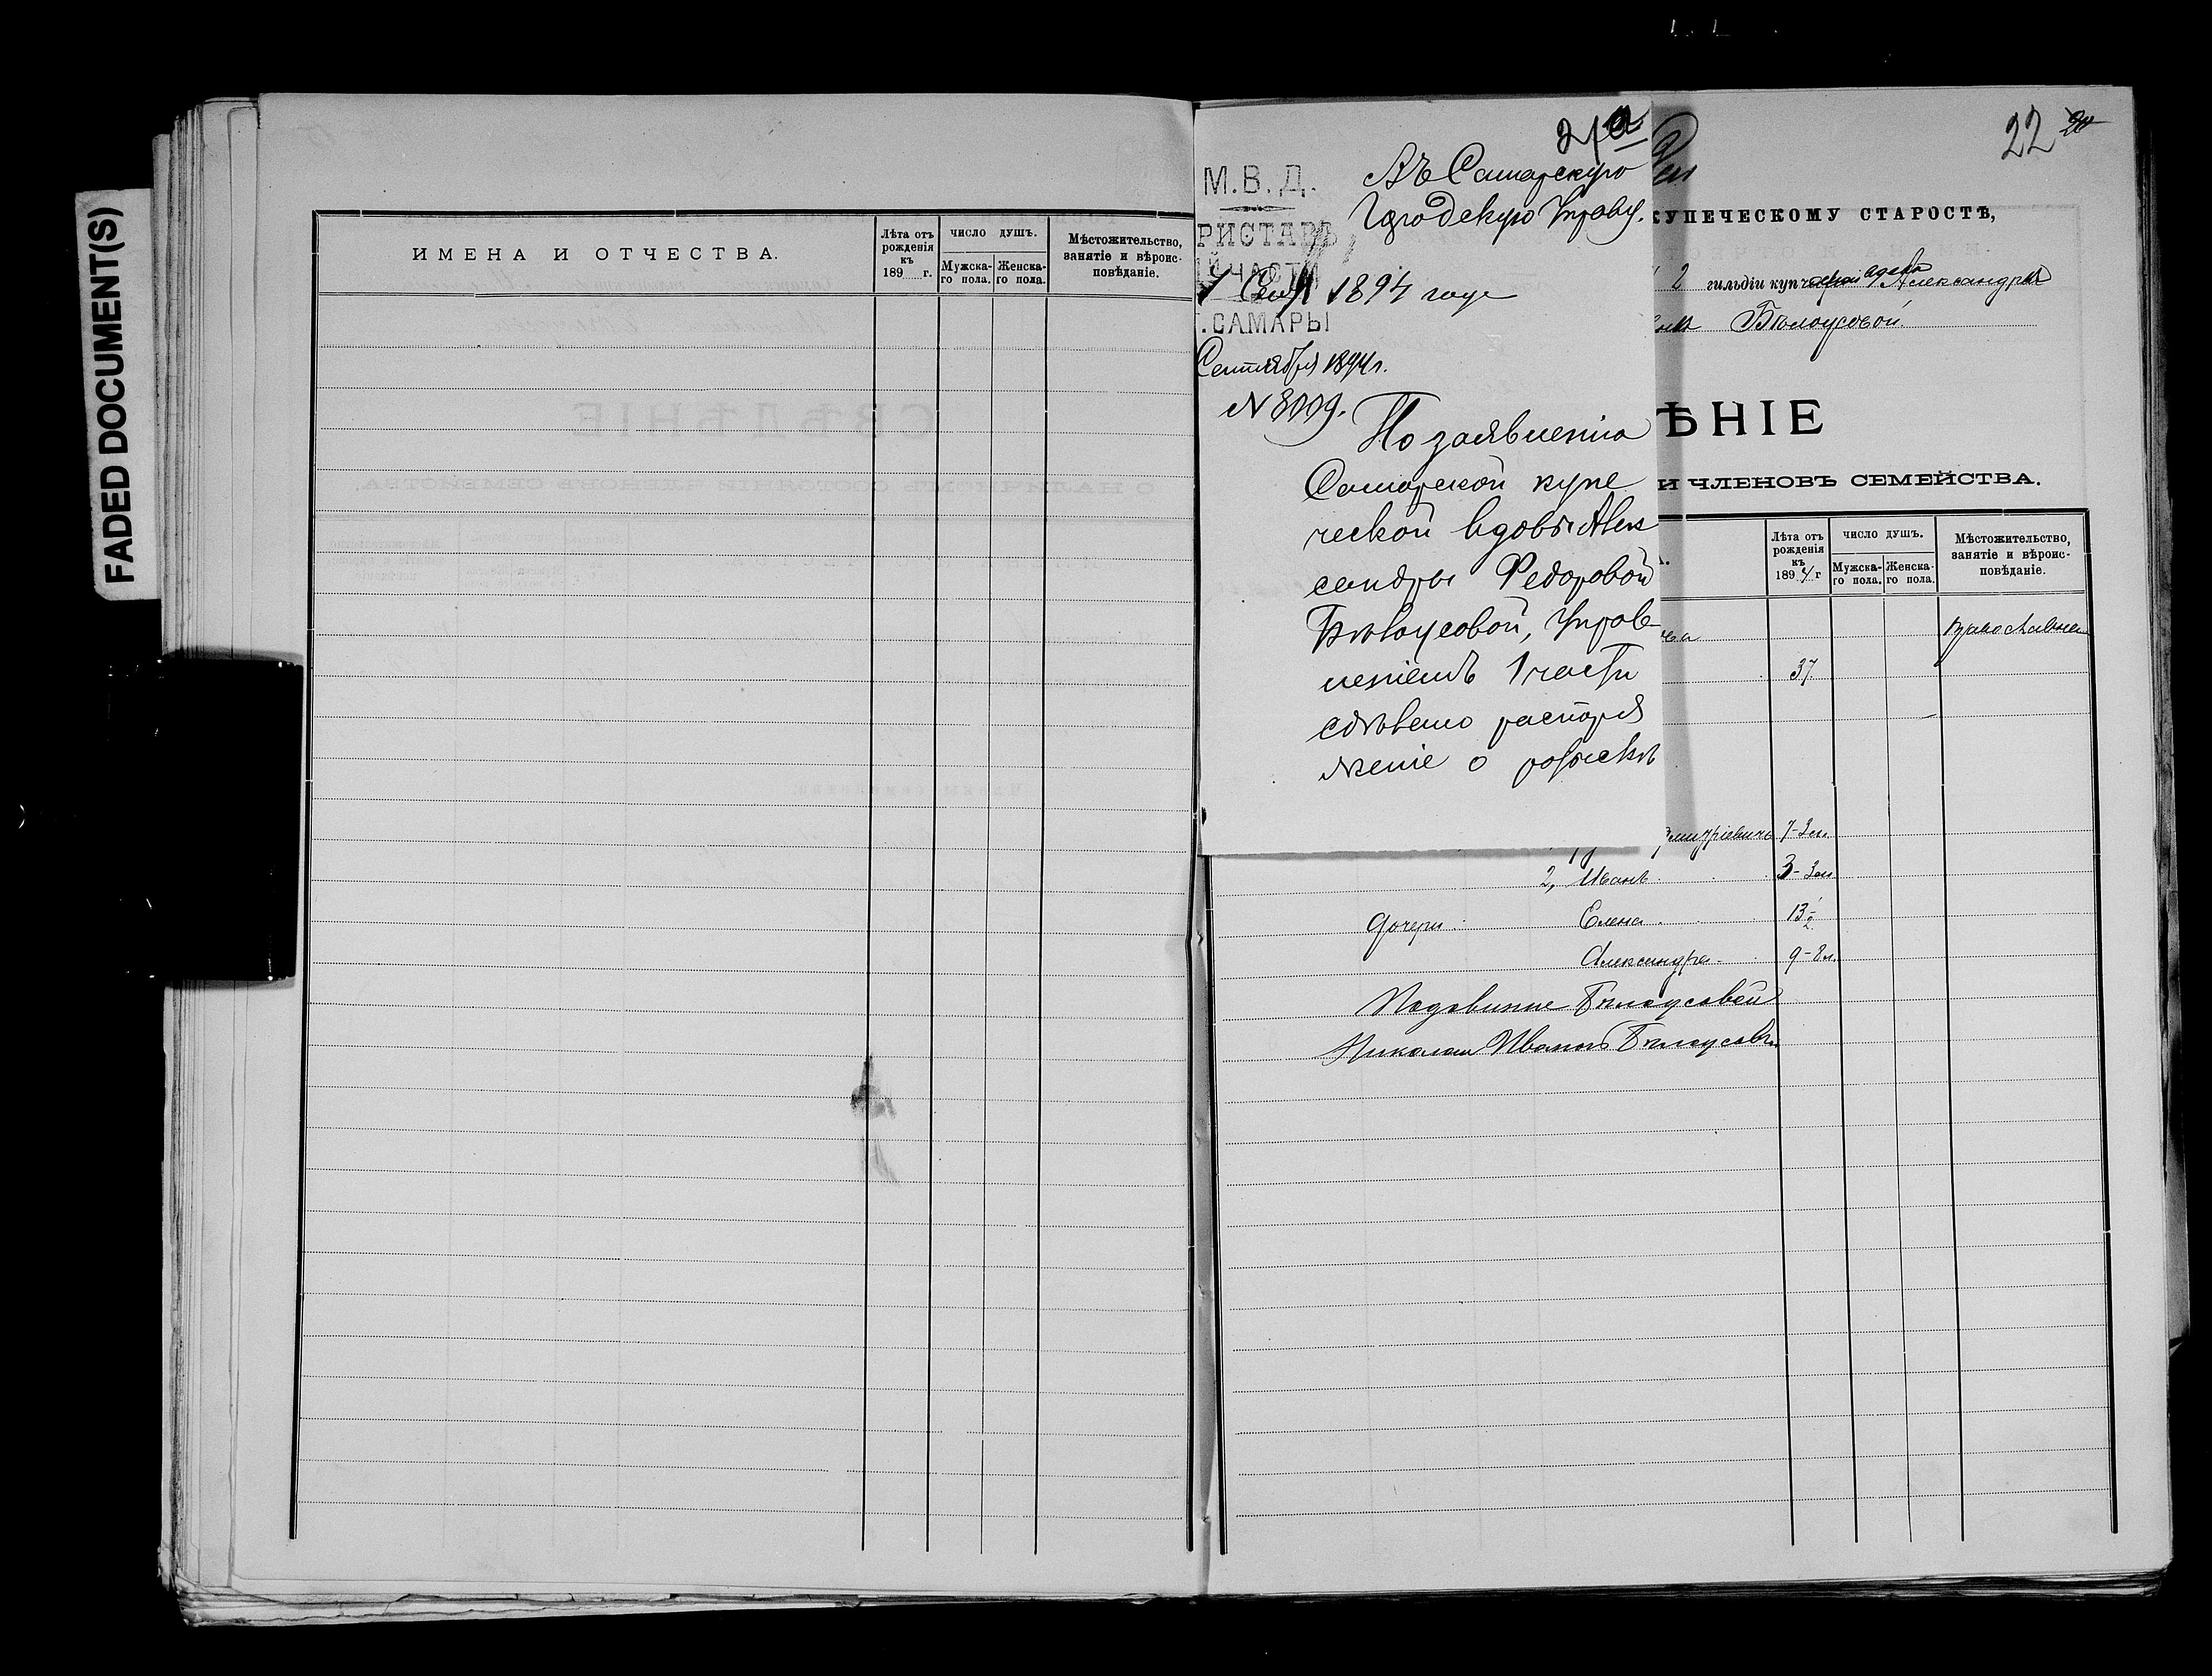 FADED DOCUMENT(S)
ИМЕНА И ОТЧЕСТВА.
Лѣта отъ рожденія къ 189 г.
ЧИСЛО ДУШЪ.
Мужска-го пола.
Женска-го пола.
Мѣстожительство, занятіе и вѣроис-повѣданіе.
М.В.Д.
РИСТАВЪ
ЧАСТИ
Г. САМАРЫ
Сентября 1894 г.
N 8009.
Въ Самарскую
Городскую Управу.
1894 года
По заявленію
Самарской купе
ческой вдовы Алек
сандры Федоровой
Бѣлоусовой, Управ-
леніемъ 1 части
сдѣлано распоря
женіе о розыскѣ
22 20
КУПЕЧЕСКОМУ СТАРОСТѢ,
2 гильдіи купческой вдовы Александры
Бѣлоусовой.
ѢНІЕ
И ЧЛЕНОВЪ СЕМЕЙСТВА.
Лѣта отъ рожденія къ 1894 г
ЧИСЛО ДУШЪ.
Мужска-го пола.
Женска-го пола.
Мѣстожительство, занятіе и вѣроис-повѣданіе.
37
митріевичъ 7-3 м.
2, Иванъ 3-3 м
Дочери Елена 13 1/2
Александра 9-8 м.
Бѣлоусовой
Николай Ивановъ Бѣлоусовъ